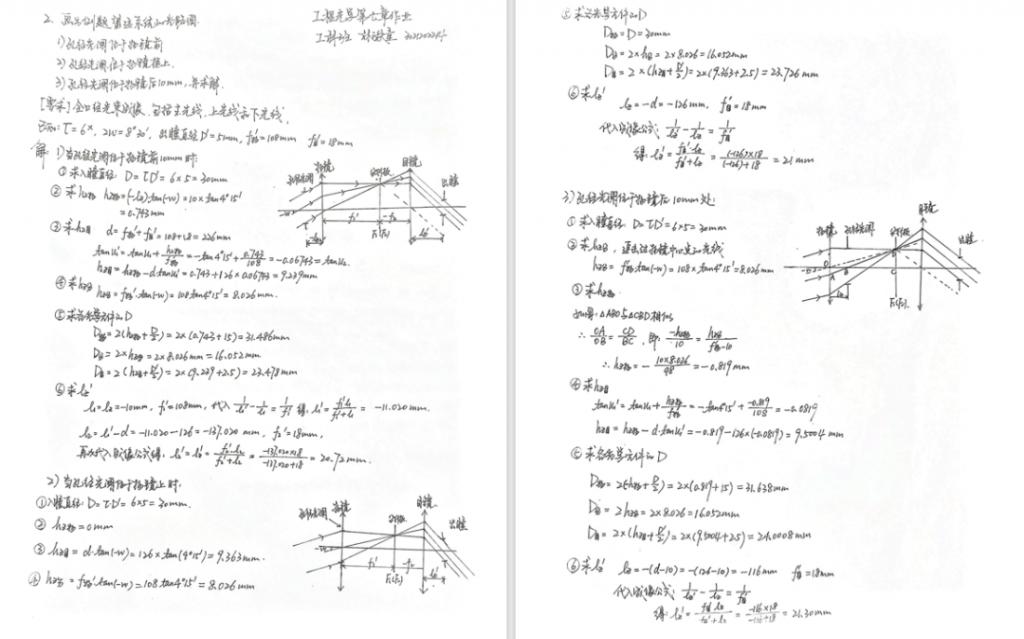 工程光学第七章作业
2. 画出例题望远系统的光路图
1) 孔径光阑位于物镜前
2) 孔径光阑位于物镜框上.
3) 孔径光阑位于物镜后10mm, 并求解.
[要求] 全口径光束成像, 包括主光线, 上光线和下光线;
已知: T=6×, 2w=8°30', 出瞳直径D'=5mm, f物'=108mm f目'=18mm
解 1) 当孔径光阑位于物镜前10mm时:
① 求入瞳直径 D=TD'=6×5=30mm
② 求hz物 hz物=(-lz)tan(-w)=10×tan4°15'
=0.743mm
③ 求hz目 d=f物'+f目'=108+18=126mm
tanu'=tanu+hz物/f物'=-tan4°15'+0.743/108=-0.06743=tanu₂
hz目=hz物-d·tanu'=0.743+126×0.06743=9.239mm
④ 求hz分
hz分=f物'·tan(-w)=108tan4°15'=8.026mm.
⑤ 求各光学元件的D
D物=2(hz物+D/2)=2×(0.743+15)=31.486mm
D分=2×hz分=2×8.026mm=16.052mm
D目=2(hz目+D'/2)=2×(9.239+2.5)=23.478mm
⑥ 求lz'
l₁=lz=-10mm, f₁'=108mm, 代入 1/l₁'-1/l₁=1/f₁' 得, l₁'=f₁'l₁/(f₁'+l₁)=-11.020mm.
l₂=l₁'-d=-11.020-126=-137.020mm, f₂'=18mm,
再次代入成像公式得, lz'=l₂'=f₂'·l₂/(f₂'+l₂)=-137.020×18/(-137.020+18)=20.72mm.
2) 当孔径光阑位于物镜上时.
① 入瞳直径D=TD'=6×5=30mm.
② hz物=0mm
③ hz目=d·tan(-w)=126×tan(4°15')=9.363mm.
④ hz分=f物'·tan(-w)=108tan4°15'=8.026mm
孔径光阑
物镜
分划板
目镜
出瞳
孔径光阑
物镜
分划板
目镜
出瞳
⑤ 求各光学元件的D
D物=D=30mm
D分=2×hz分=2×8.026=16.052mm
D目=2×(hz目+D'/2)=2×(9.363+2.5)=23.726mm
⑥ 求lz'
lz=-d=-126mm, f目'=18mm
代入成像公式: 1/lz'-1/lz=1/f目'
得: lz'=f目'·lz/(f目'+lz)=(-126)×18/((-126)+18)=21mm
3) 孔径光阑位于物镜后10mm处:
① 求入瞳直径 D=TD'=6×5=30mm
hz分=f物'tan(-w)=108×tan4°15'=8.026mm
③ 求hz物
如图: △ABO与△CBD相似
∴ OA/OB=CD/BC, 即: -hz物/10=hz分/(f物'-10)
∴ hz物=-10×8.026/98=-0.819mm
④ 求hz目
tanu'=tanu+hz物/f物'=-tan4°15'+-0.819/108=-0.0819
hz目=hz物-d·tanu'=-0.819-126×(-0.0819)=9.5004mm
⑤ 求各光学元件的D
D物=2(hz物+D/2)=2×(0.819+15)=31.638mm
D分=2hz分=2×8.026=16.052mm
D目=2×(hz目+D'/2)=2×(9.5004+2.5)=24.0008mm
⑥ 求lz' lz=-(d-10)=-(126-10)=-116mm f目'=18mm
代入成像公式: 1/lz'-1/lz=1/f目'
得: lz'=f目'lz/(f目'+lz)=-116×18/(-116+18)=21.30mm
物镜
孔径光阑
分划板
目镜
出瞳